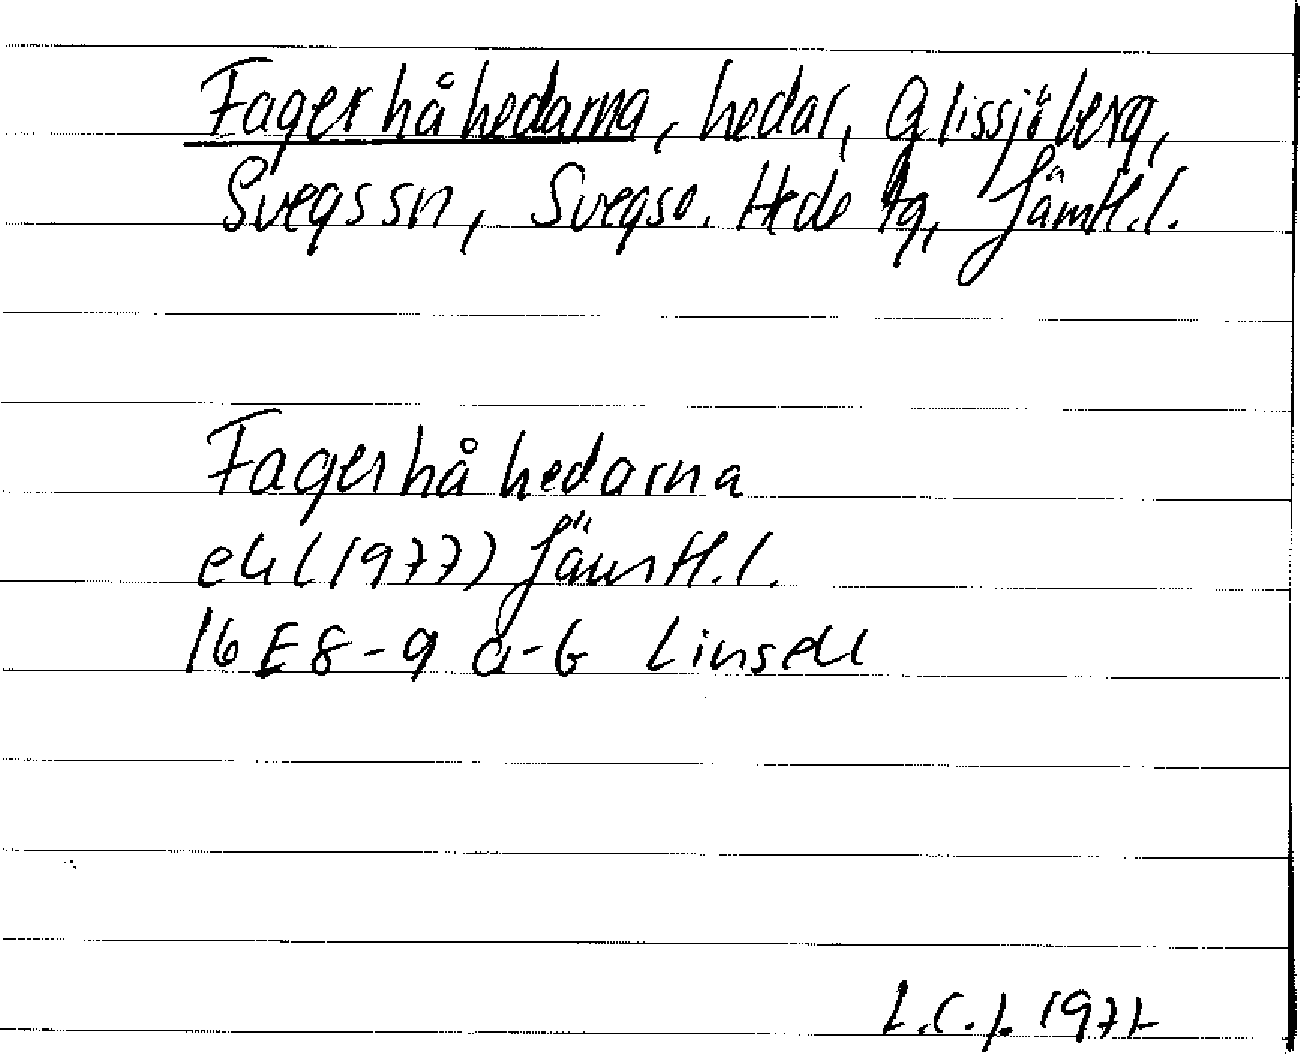 Fagerhåhedarna, hedar, Glissjöberg,
Svegs sn, Svegs o. Hede tg, Jämtl.l.
Fagerhåhedarna
ek (1977) Jämtl.l.
16 E 8-9 a-b Linsell
L.C.J. 1977